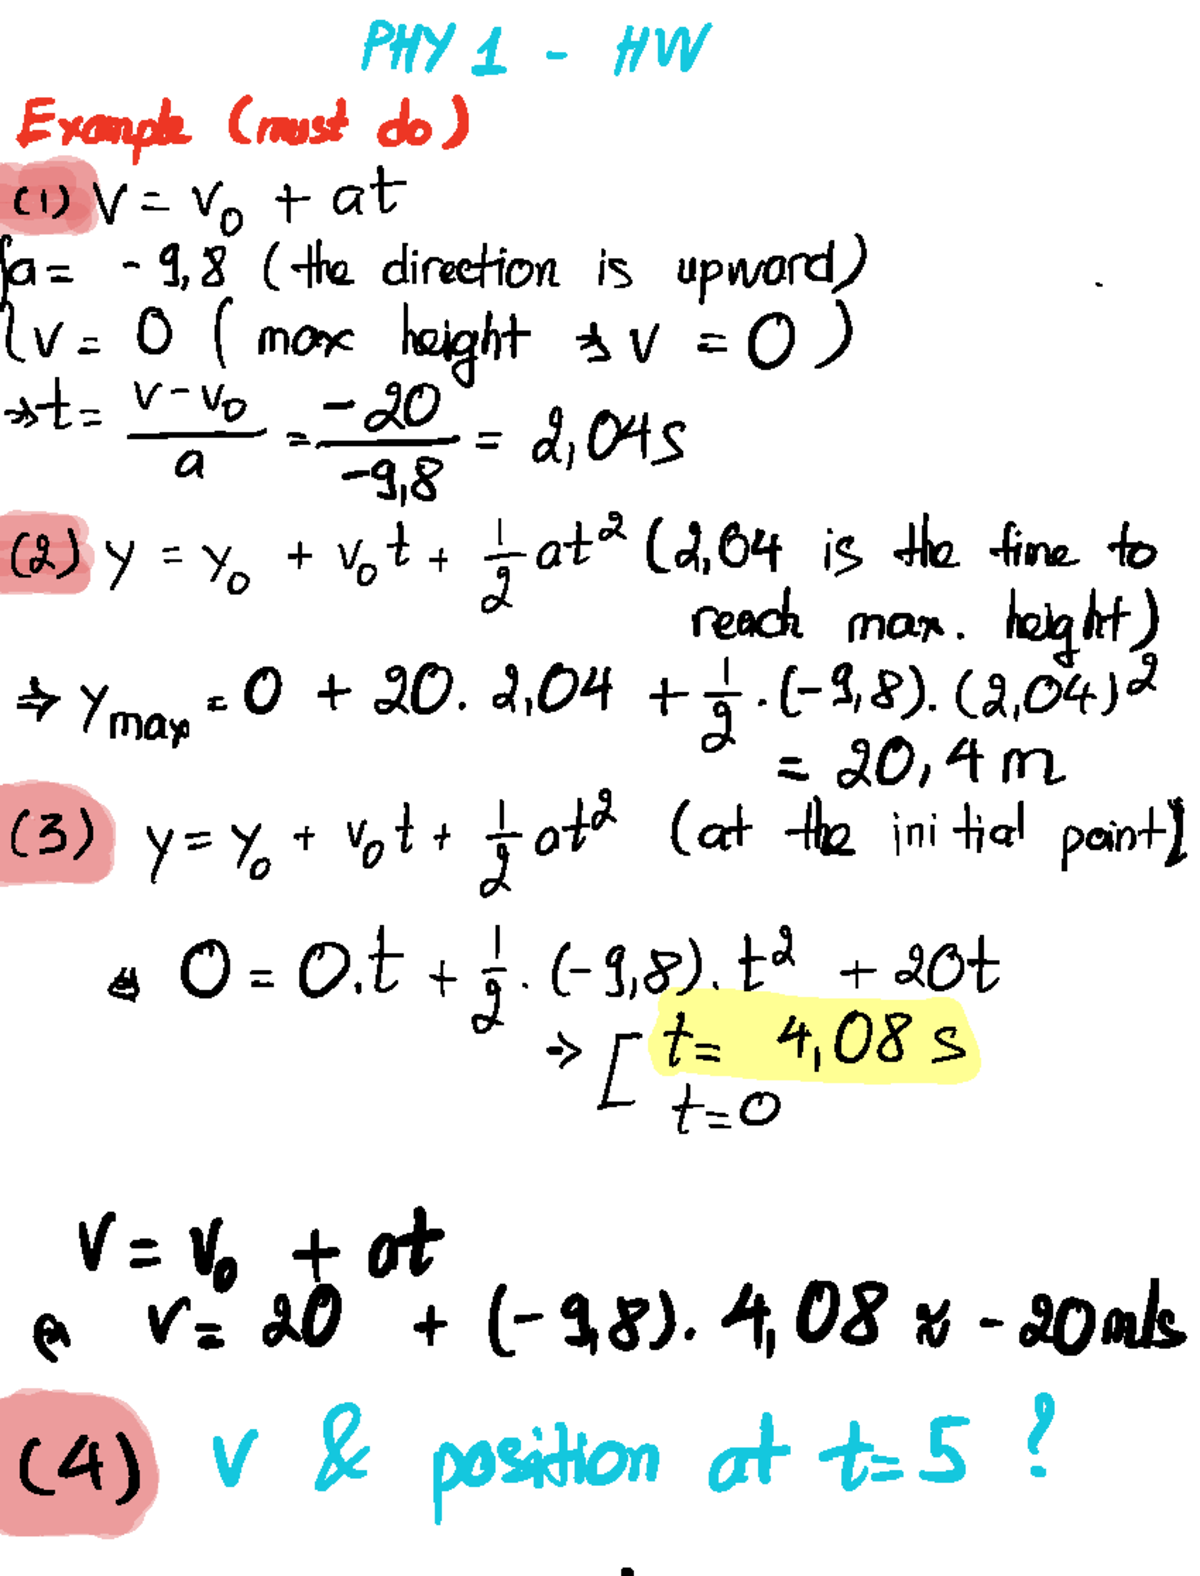 PHY 1 - HW
Example (must do)
(1) V = v₀ + at
{a = -9,8 (the direction is upward)
{v = 0 (max height ⇒ v = 0)
⇒ t = (v - v₀)/a = -20/-9,8 = 2,04s
(2) y = y₀ + v₀t + 1/2 at² (2,04 is the time to
reach max. height)
⇒ y max = 0 + 20. 2,04 + 1/2 . (-9,8). (2,04)²
= 20,4 m
(3) y = y₀ + v₀t + 1/2 at² (at the initial point)
⇔ 0 = 0.t + 1/2 . (-9,8). t² + 20t
⇒ [ t = 4,08 s
t = 0
V = V₀ + at
⇔ V = 20 + (-9,8). 4,08 ≈ -20 m/s
(4) v & position at t = 5 ?